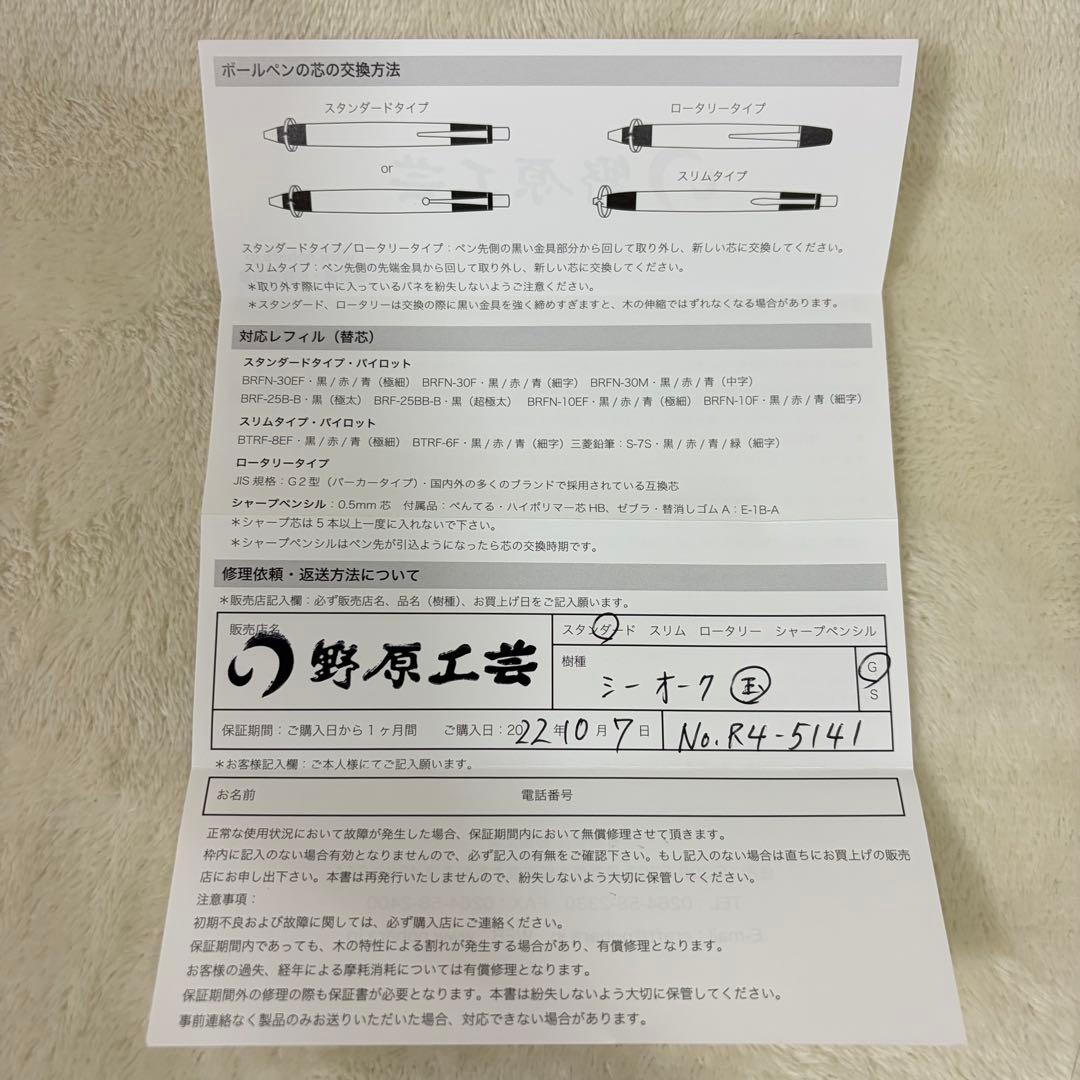 ボールペンの芯の交換方法
スタンダードタイプ
ロータリータイプ
or
スリムタイプ
スタンダードタイプ／ロータリータイプ：ペン先側の黒い金具部分から回して取り外し、新しい芯に交換してください。
スリムタイプ：ペン先側の先端金具から回して取り外し、新しい芯に交換してください。
＊取り外す際に中に入っているバネを紛失しないようご注意ください。
＊スタンダード、ロータリーは交換の際に黒い金具を強く締めすぎますと、木の伸縮ではずれなくなる場合があります。
対応レフィル（替芯）
スタンダードタイプ・パイロット
BRFN-30EF・黒 / 赤 / 青（極細） BRFN-30F・黒 / 赤 / 青（細字） BRFN-30M・黒 / 赤 / 青（中字）
BRF-25B-B・黒（極太） BRF-25BB-B・黒（超極太） BRFN-10EF・黒 / 赤 / 青（極細） BRFN-10F・黒 / 赤 / 青（細字）
スリムタイプ・パイロット
BTRF-8EF・黒 / 赤 / 青（極細） BTRF-6F・黒 / 赤 / 青（細字）三菱鉛筆：S-7S・黒 / 赤 / 青 / 緑（細字）
ロータリータイプ
JIS 規格：G２型（パーカータイプ）・国内外の多くのブランドで採用されている互換芯
シャープペンシル：0.5mm 芯 付属品：ぺんてる・ハイポリマー芯 HB、ゼブラ・替消しゴム A：E-1B-A
＊シャープ芯は５本以上一度に入れないで下さい。
＊シャープペンシルはペン先が引込ようになったら芯の交換時期です。
修理依頼・返送方法について
＊販売店記入欄：必ず販売店名、品名（樹種）、お買上げ日をご記入願います。
販売店名
野原工芸
スタンダード スリム ロータリー シャープペンシル
樹種
シーオーク
G
S
保証期間：ご購入日から１ヶ月間 ご購入日：2022年10月7日
No.R4-5141
＊お客様記入欄：ご本人様にてご記入願います。
お名前 電話番号
正常な使用状況において故障が発生した場合、保証期間内において無償修理させて頂きます。
枠内に記入のない場合有効となりませんので、必ず記入の有無をご確認下さい。もし記入のない場合は直ちにお買上げの販売
店にお申し出下さい。本書は再発行いたしませんので、紛失しないよう大切に保管してください。
注意事項：
初期不良および故障に関しては、必ず購入店にご連絡ください。
保証期間内であっても、木の特性による割れが発生する場合があり、有償修理となります。
お客様の過失、経年による摩耗消耗については有償修理となります。
保証期間外の修理の際も保証書が必要となります。本書は紛失しないよう大切に保管してください。
事前連絡なく製品のみお送りいただいた場合、対応できない場合があります。